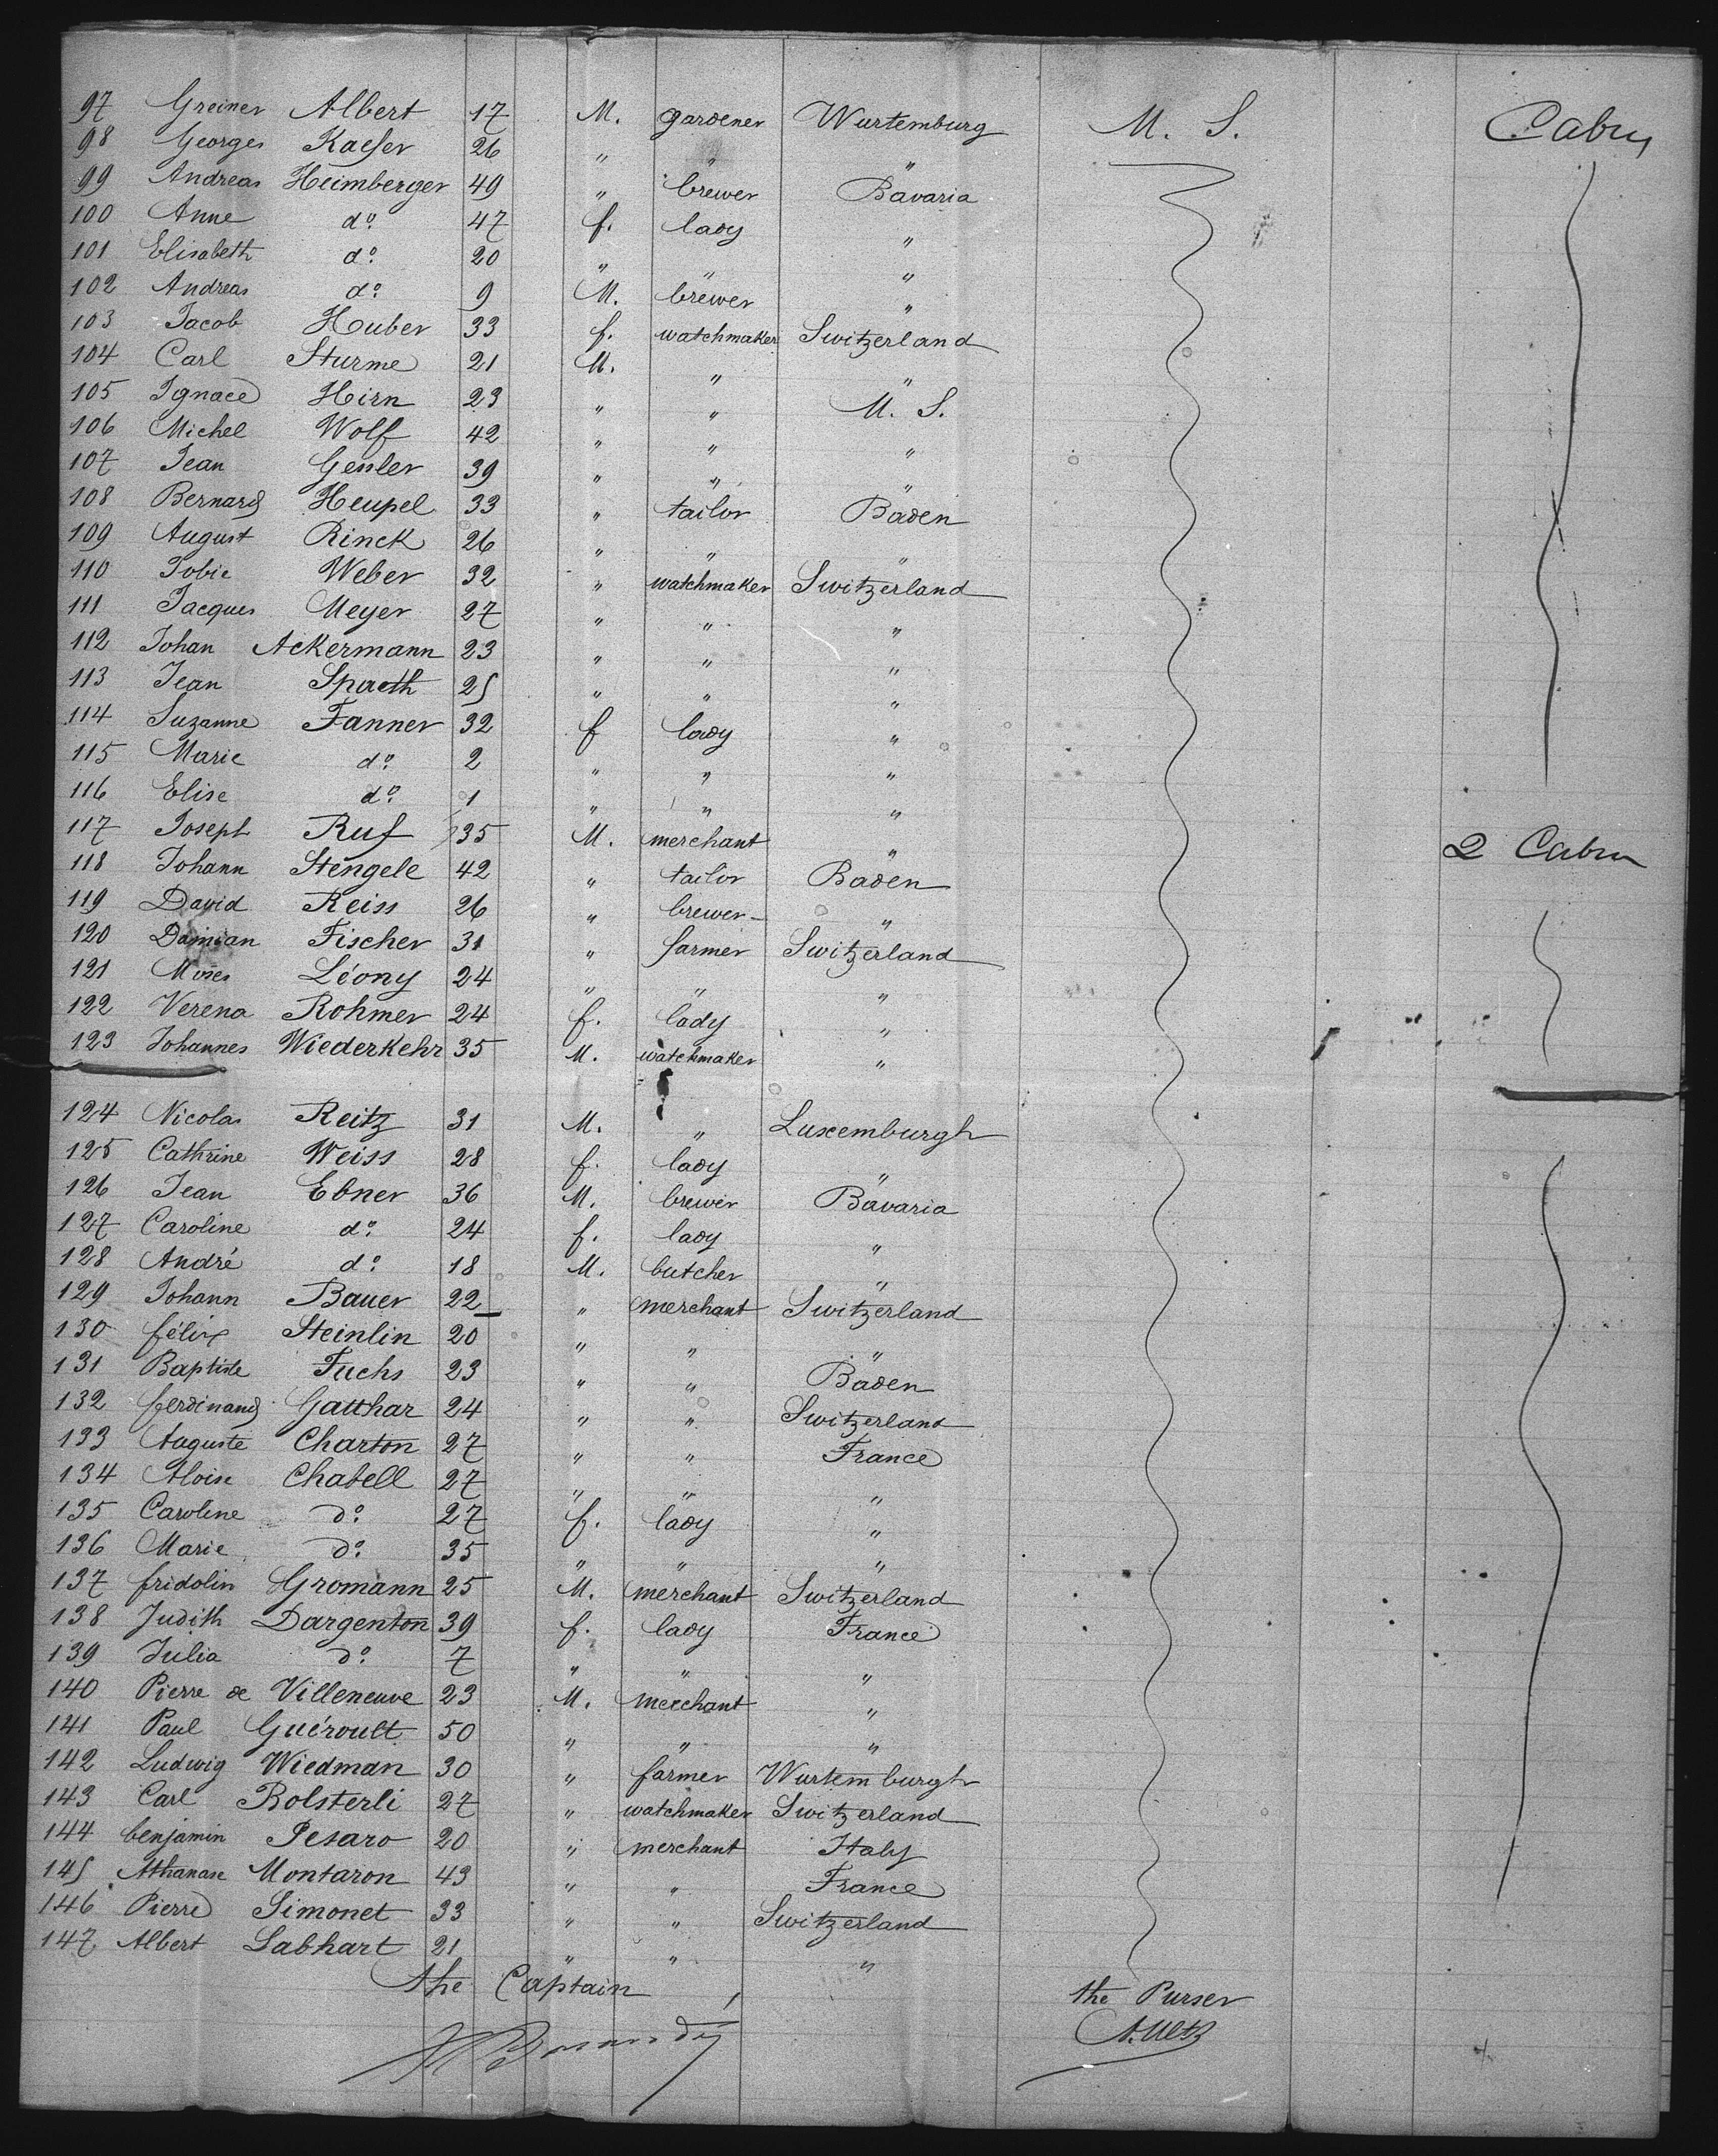 97 Greiner Albert 17 M. gardener Wurtemburg U. S. Cabin
98 Georges Kaeser 26 " " "
99 Andreas Heimberger 49 " brewer Bavaria
100 Anne do. 47 f. lady "
101 Elisabeth do. 20 " " "
102 Andreas do. 9 M. brewer "
103 Jacob Huber 33 f. watchmaker Switzerland
104 Carl Sturme 21 M. " "
105 Ignace Hirn 23 " " U. S.
106 Michel Wolf 42 " " "
107 Jean Gensler 39 " " "
108 Bernard Heupel 33 " tailor Baden
109 August Rinck 26 " " "
110 Tobie Weber 32 " watchmaker Switzerland
111 Jacques Meyer 27 " " "
112 Johan Ackermann 23 " " "
113 Jean Spaeth 25 " " "
114 Suzanne Fanner 32 f lady "
115 Marie do. 2 " " "
116 Elise do. 1 " " "
117 Joseph Ruf 35 M. merchant " 2 Cabin
118 Johann Stengele 42 " tailor Baden
119 David Reiss 26 " brewer "
120 Damian Fischer 31 " farmer Switzerland
121 Moses Léony 24 " " "
122 Verena Rohmer 24 f. lady "
123 Johannes Wiederkehr 35 M. watchmaker "
124 Nicolas Reitz 31 M. " Luxemburgh
125 Cathrine Weiss 28 f. lady "
126 Jean Ebner 36 M. brewer Bavaria
127 Caroline do. 24 f. lady "
128 André do. 18 M. butcher "
129 Johann Bauer 22 " merchant Switzerland
130 félix Steinlin 20 " " "
131 Baptiste Fuchs 23 " " Baden
132 ferdinand Gatthar 24 " " Switzerland
133 Auguste Charton 27 " " France
134 Aloise Chatell 27 " " "
135 Caroline do. 27 f. lady "
136 Marie do. 35 " " "
137 fridolin Gromann 25 M. merchant Switzerland
138 Judith Dargenton 39 f. lady France
139 Julia do. 7 " " "
140 Pierre de Villeneuve 23 M. merchant "
141 Paul Guéroult 50 " " "
142 Ludwig Wiedman 30 " farmer Wurtemburgh
143 Carl Bolsterli 27 " watchmaker Switzerland
144 benjamin Pesaro 20 " merchant Italy
145 Athanase Montaron 43 " " France
146 Pierre Simonet 33 " " Switzerland
147 Albert Labhart 21 " " "
the Captain the Purser